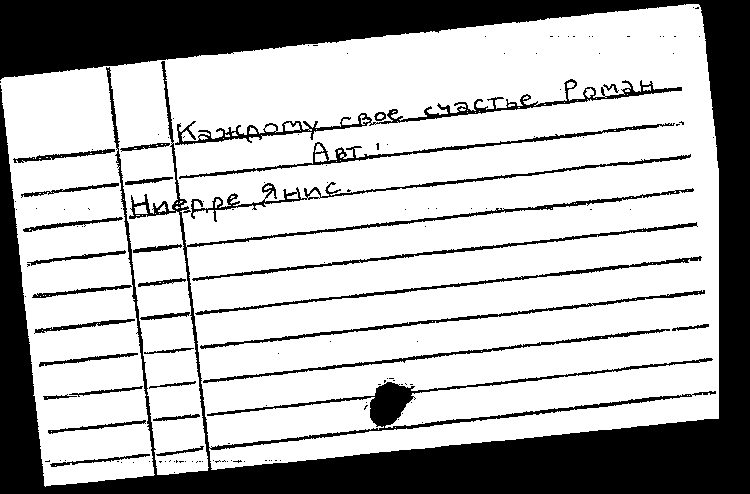 Каждому свое счастье Роман
Авт.:
Ниедре, Янис.